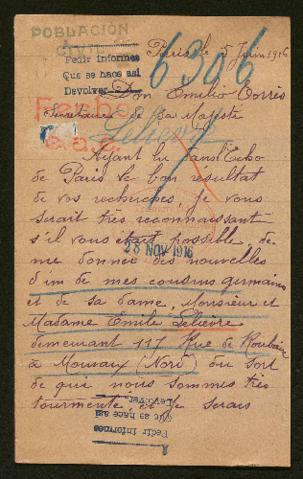 POBLACIÓN
CIVIL
Paris le 5 Juin 1916
Pedir informes
Que se hace así
Devolver
6306
Don Emilio Torrès
Fecho
Secrétaire de Sa Majesté
Lelievre
Ayant lu dans l'Echo
de Paris le bon résultat
de vos recherches, je vous
serait très reconnaissant
s'il vous était possible, de
28 NOV 1916
me donner des nouvelles
d'un de mes cousins germains
et de sa dame, Monsieur et
Madame Emile Lelievre
demeurant 117 Rue de Roubaix
à Mouvaux (Nord) du sort
de qui nous sommes très
tourmenté, et je serais
Pedir informes
Que se hace así
Devolver